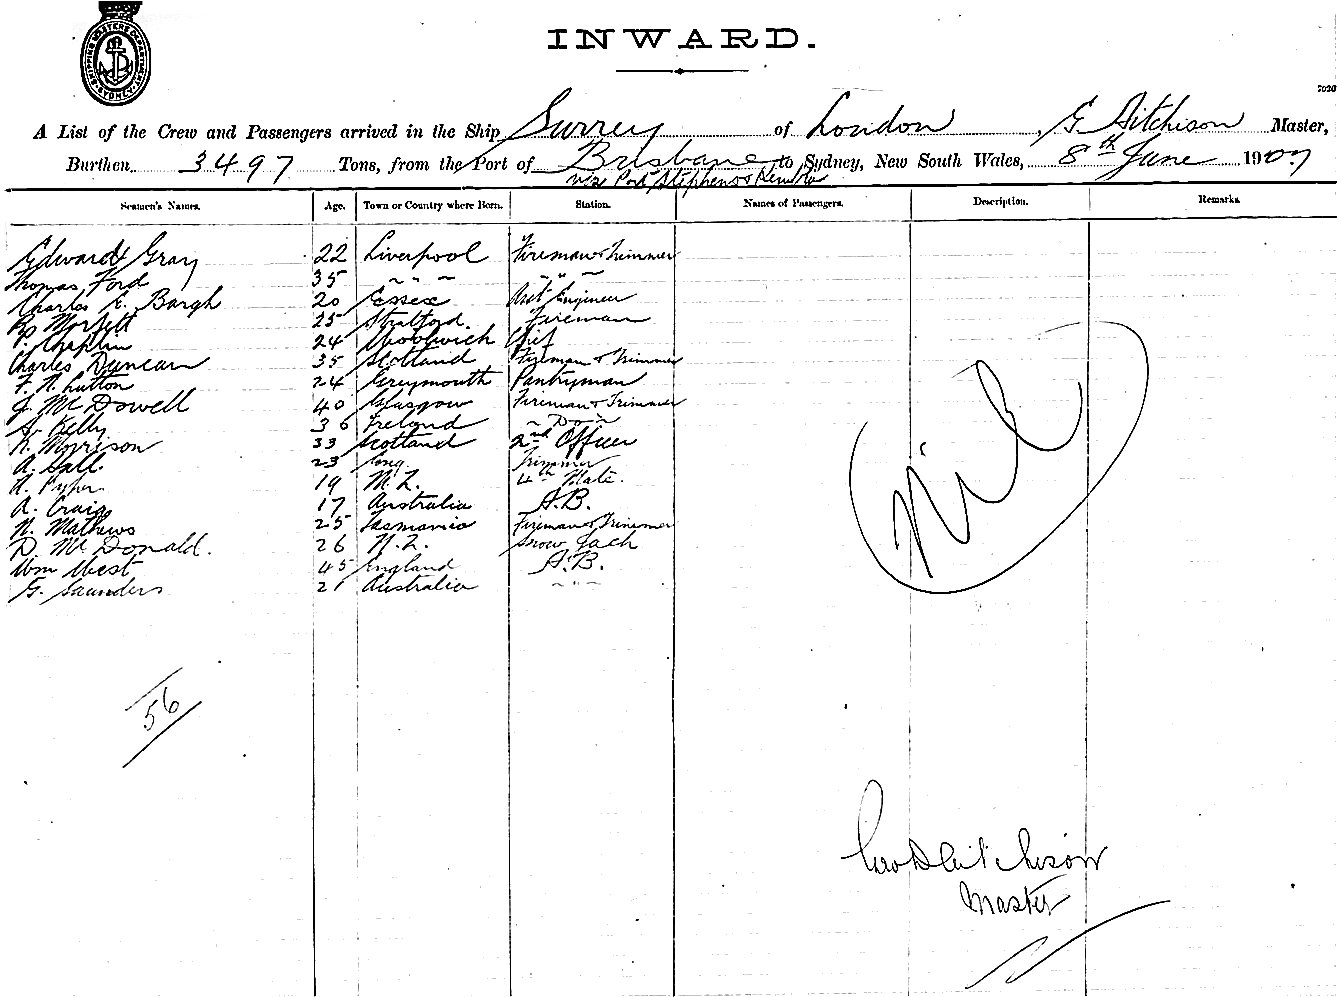 SHIPPING MASTERS DEPARTMENT SYDNEY
INWARD.
A List of the Crew and Passengers arrived in the Ship Surrey of London, G Aitchison Master,
Burthen 3497 Tons, from the Port of Brisbane to Sydney, New South Wales, 8th June 1907
via Port Stephens & Kembla
Seamen's Names. Age. Town or Country where Born. Station. Names of Passengers. Description. Remarks.
Edward Gray 22 Liverpool Fireman & Trimmer
Thomas Ford 35 " " " " " "
Charles E. Bargh 20 Essex Asst Engineer
Morfett 25 Stratford. Fireman
Chaplin 24 Woolwich Chief
Charles Duncan 35 Scotland Fireman & Trimmer
F. N. Lutton 24 Greymouth Pantryman
J. Mc Dowell 40 Glasgow Fireman & Trimmer
Kelly 36 Ireland " Do "
Morrison 33 Scotland 2nd Officer
A. 23 Eng Trimmer
Pyper 19 N.Z. 4th Mate.
A. Craig 17 Australia A.B.
N. Mathews 25 Tasmania Fireman & Trimmer
D. Mc Donald. 26 N.Z. Snow Jack
Wm West 45 England A.B.
G. Saunders 21 Australia " " "
Nil
56
Geo D Aitchison
Master